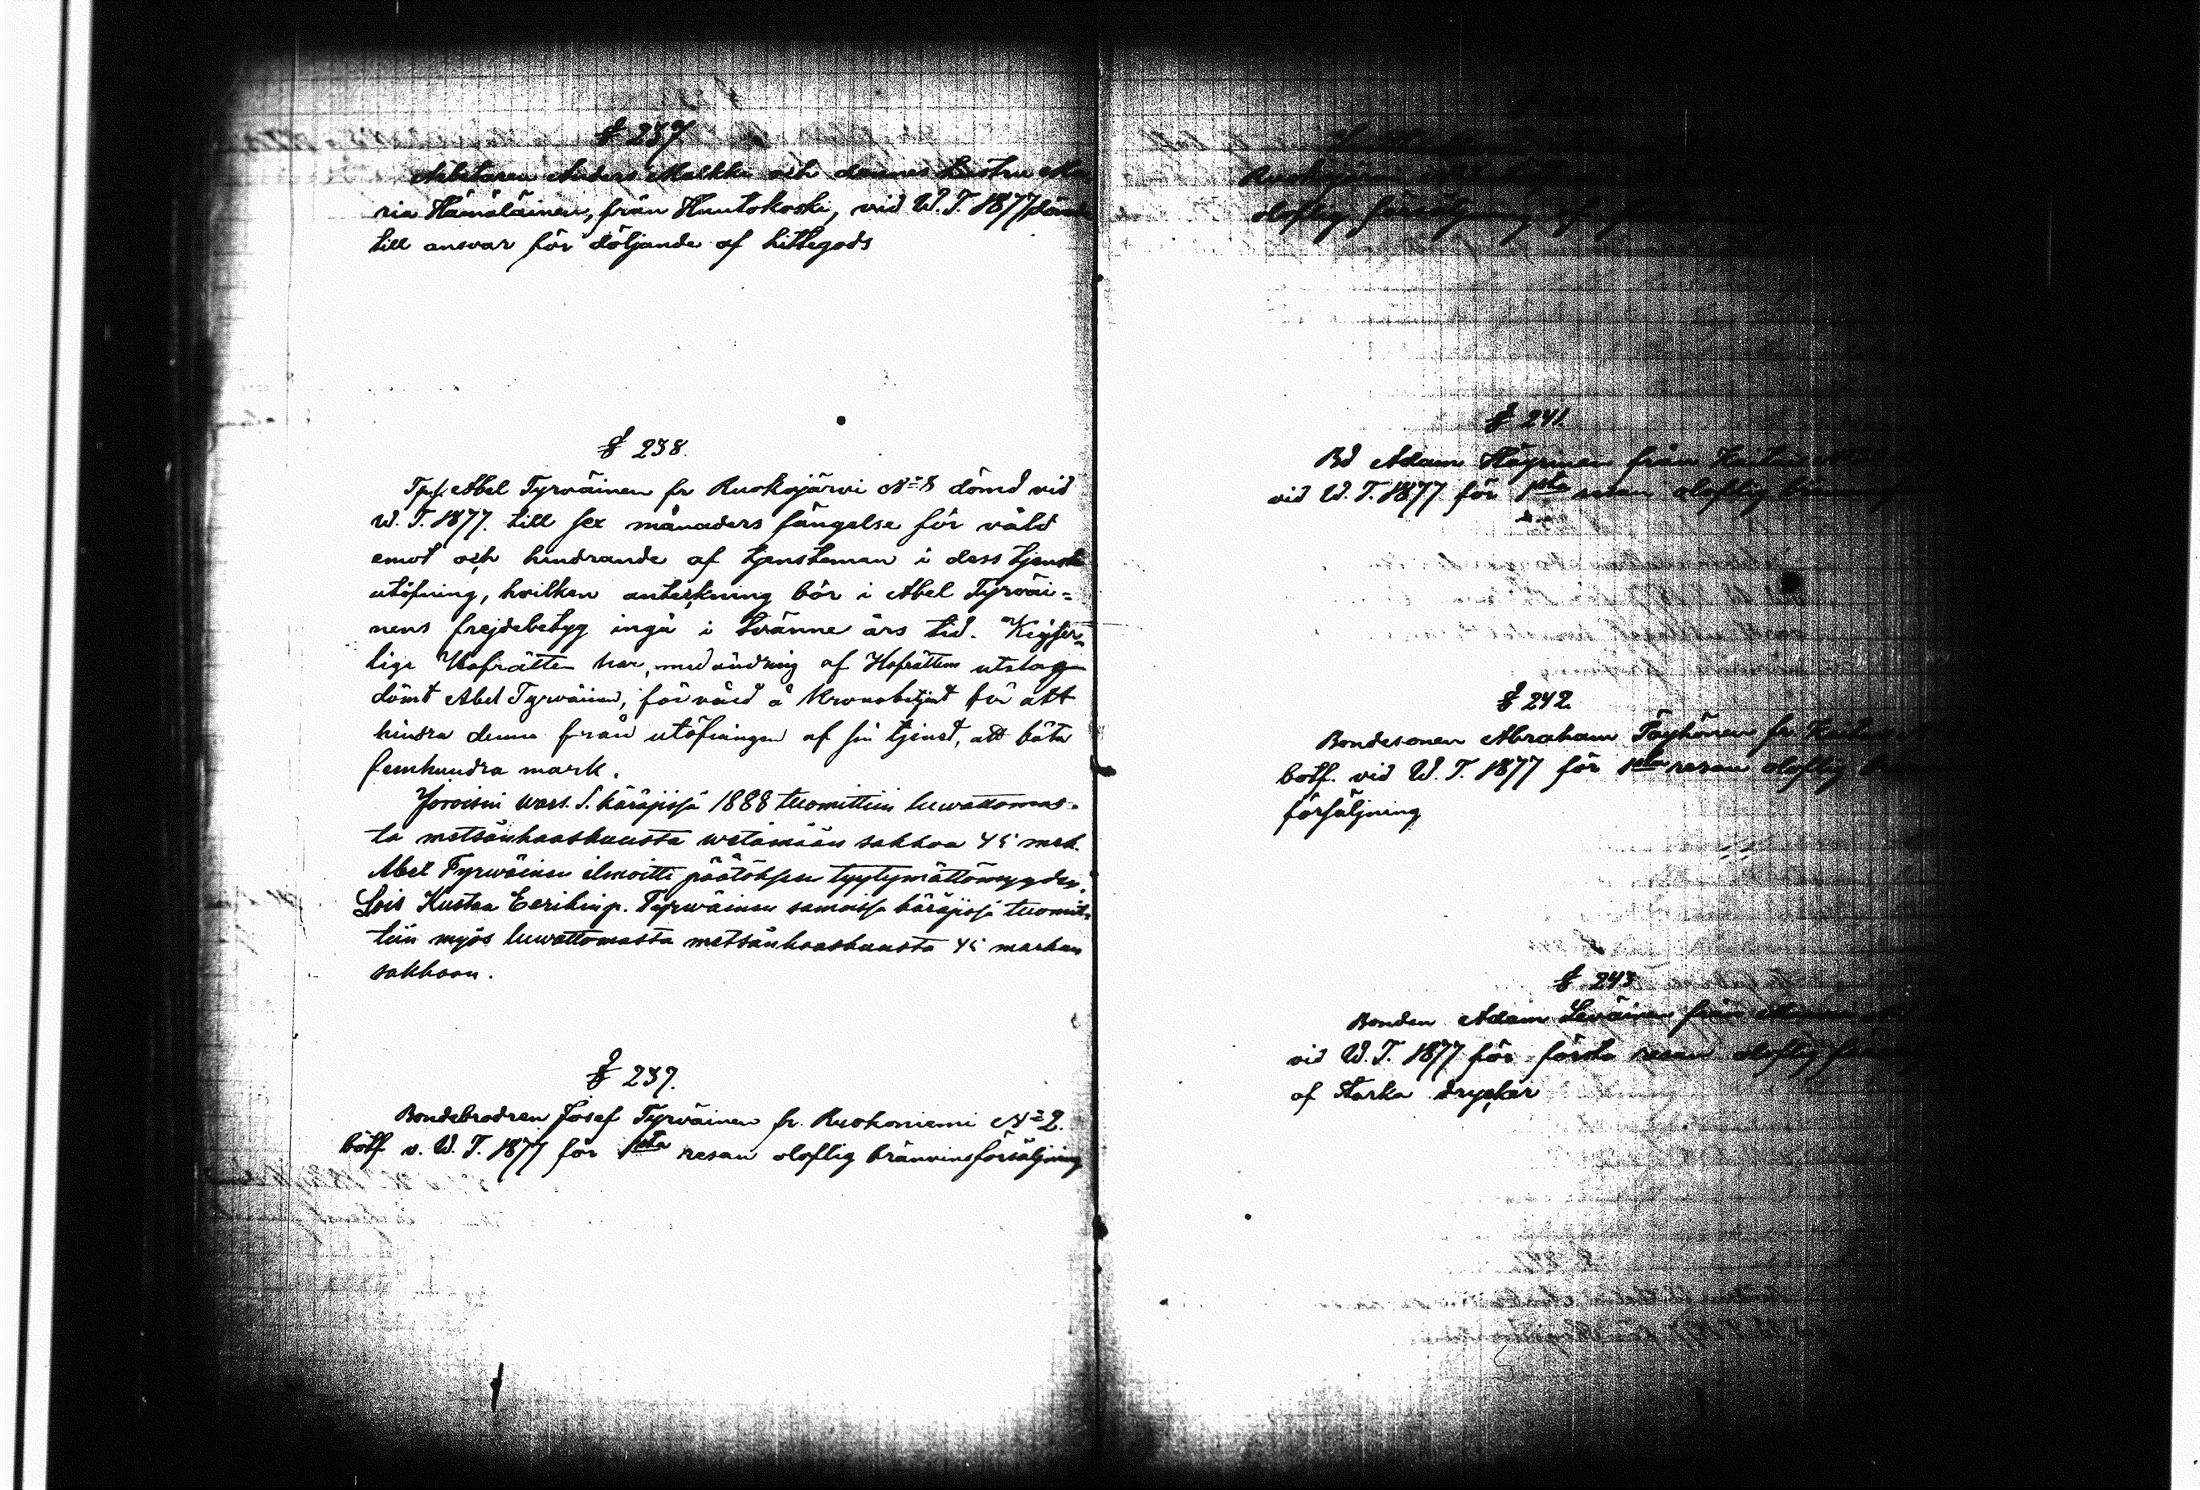 § 237.
Arbetaren Anders Malkki och dennes hustru Ma
ria Hämäläinen, från Huutokoski, vid W. T. 1877 dömde
till ansvar för döljande af hittegods
§ 238.
Tpf. Abel Tyrväinen fr Ruokojärvi No 8 dömd vid
W. T. 1877. till sex månaders fängelse för våld
emot och hindrande af tjensteman i dess tjenste
utöfning, hvilken anteckning bör i Abel Tyrväi=
nens frejdebetyg ingå i tvänne års tid. Kejser-
liga Hofrätten har, med ändring af Hofrättens utslag
dömt Abel Tyrväinen, för våld å Kronobetjent för att
hindra denne från utöfningen af sin tjenst, att böta
femhundra mark.
Joroisin wars. S. käräjissä 1888 tuomittiin luwattomas-
ta metsänhaaskuusta wetämään sakkoa 45 mrk.
Abel Tyrwäinen ilmoitti päätöksen tyytymättömyyden.
Lois Kustaa Eerikinp. Tyrwäinen samoissa käräjissä tuomit-
tiin myös luwattomasta metsänhaaskuusta 45 markan
sakkoon.
§ 239.
Bondebrodren Josef Tyrväinen fr. Ruokoniemi No 2.
bötf. v. W. T. 1877 för 1sta resan oloflig bränvinsförsäljning
Ruokojärvi
oloflig försäljning af
§ 241.
Bd Adam Häyrinen från
vid W. T. 1877 för 1sta resan oloflig
§ 242.
Bondesonen Abraham Täyhönen fr.
bötf. vid W. T. 1877 för 1sta resan oloflig
försäljning
§ 243.
Bonden Adam Leväinen från
vid W. T. 1877 för första resan oloflig
af starka drycker